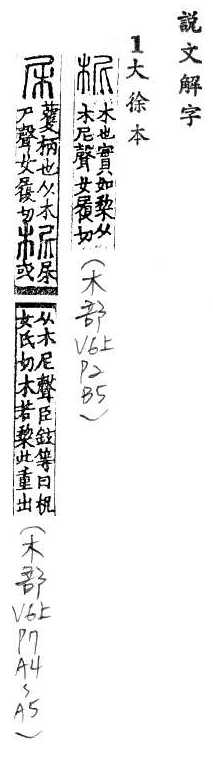 說文解字
1大徐本
柅木也實如棃从木尼聲女履切(木部V6上P2B5)
杘籆柄也从木尸聲女履切柅杘或从木尼聲臣鉉等曰柅女氏切木若棃此重出(木部V6上P7A4~A5)